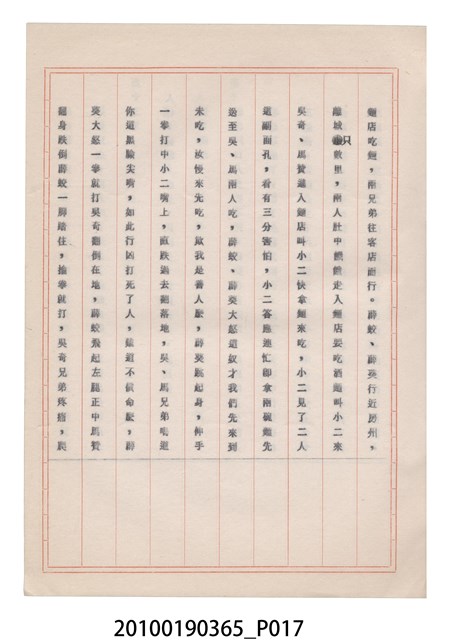 麵店吃麵，兩兄弟往客店而行。薛蛟、薛葵行近房州，
離城只數里，兩人肚中饑餓走入麵店要吃酒麵叫小二來
吳奇、馬贊進入麵店叫小二快拿麵來吃，小二見了二人
這副面孔，看有三分害怕，小二答應連忙即拿兩碗麵先
送至吳、馬兩人吃，薛蛟、薛葵大怒這奴才我們先來到
未吃，汝後來先吃，欺我是番人麼，薛葵跳起身，伸手
一拳打中小二嘴上，直跌過去翻落地，吳、馬兄弟喝道
你這黑臉尖嘴，如此行凶打死了人，難道不償命麼，薛
葵大怒一拳就打吳奇翻倒在地，薛蛟飛起左腿正中馬贊
翻身跌倒薛蛟一腳踏住，掄拳就打，吳奇兄弟疼痛，爬
20100190365_P017